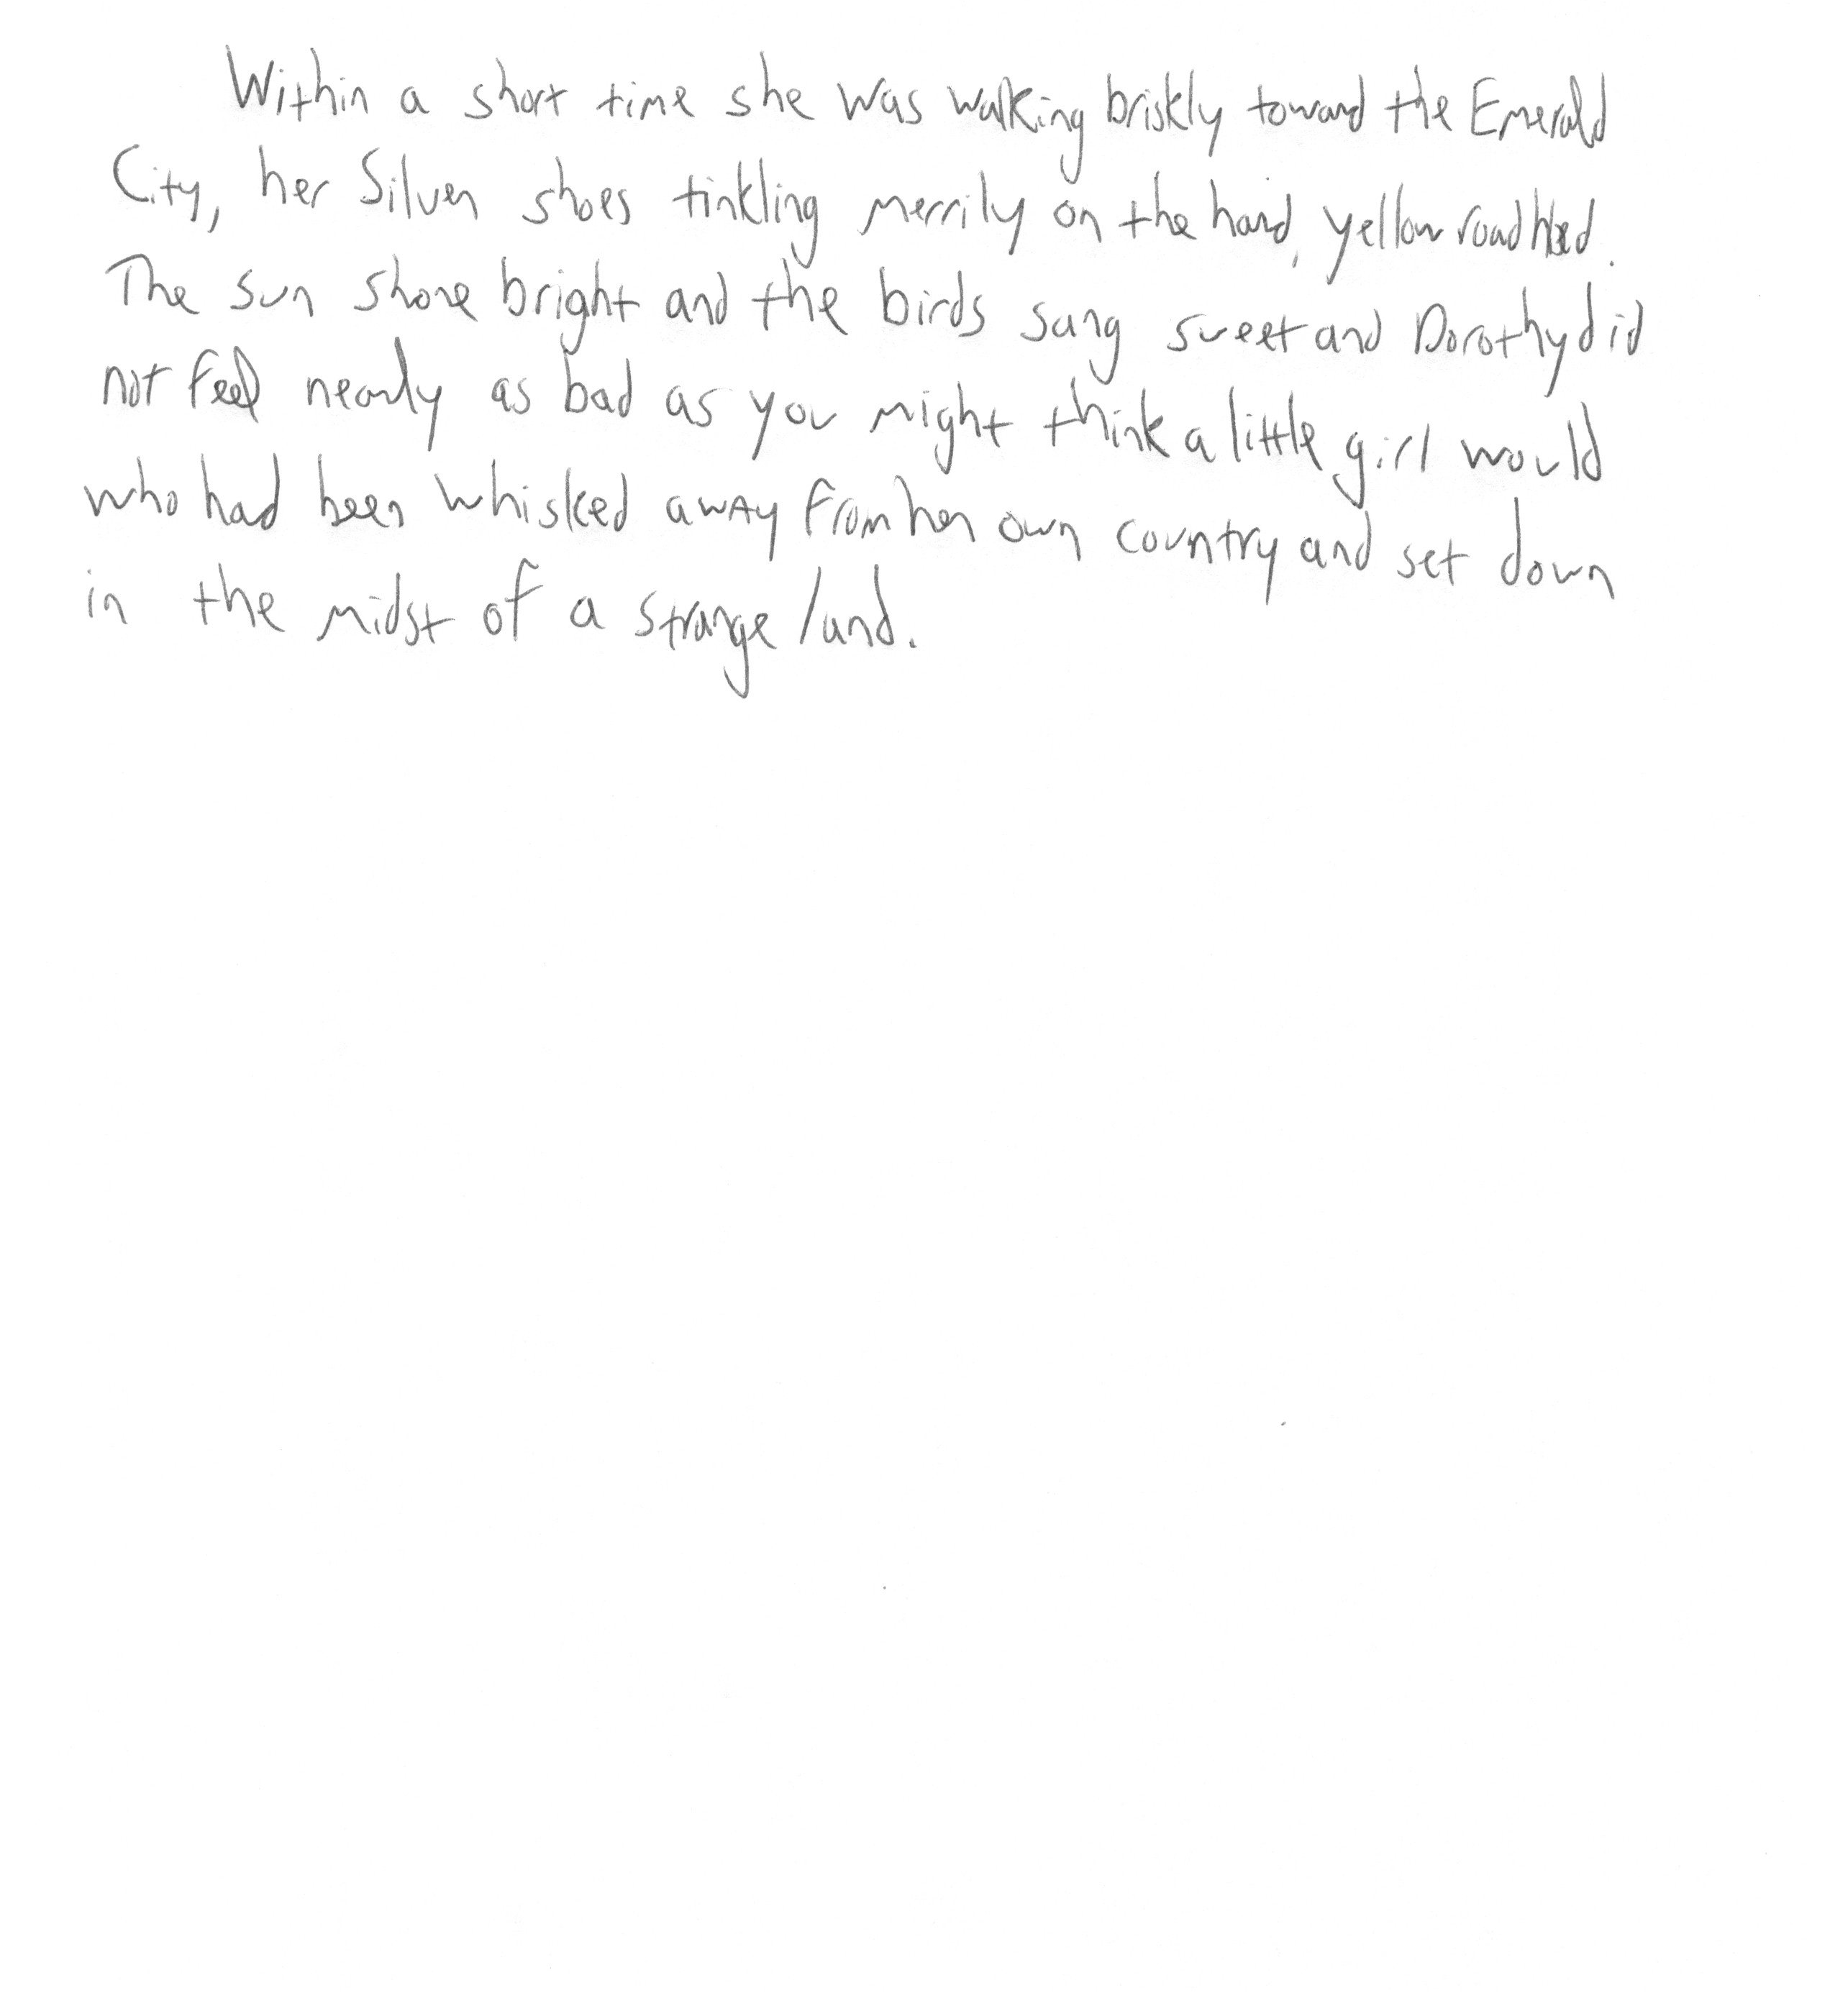 Within a short time she was walking briskly toward the Emerald
City, her Silver shoes tinkling merrily on the hard, yellow roadbed.
The sun shone bright and the birds sang sweet and Dorothy did
not feel nearly as bad as you might think a little girl would
who had been whisked away from her own country and set down
in the midst of a strange land.